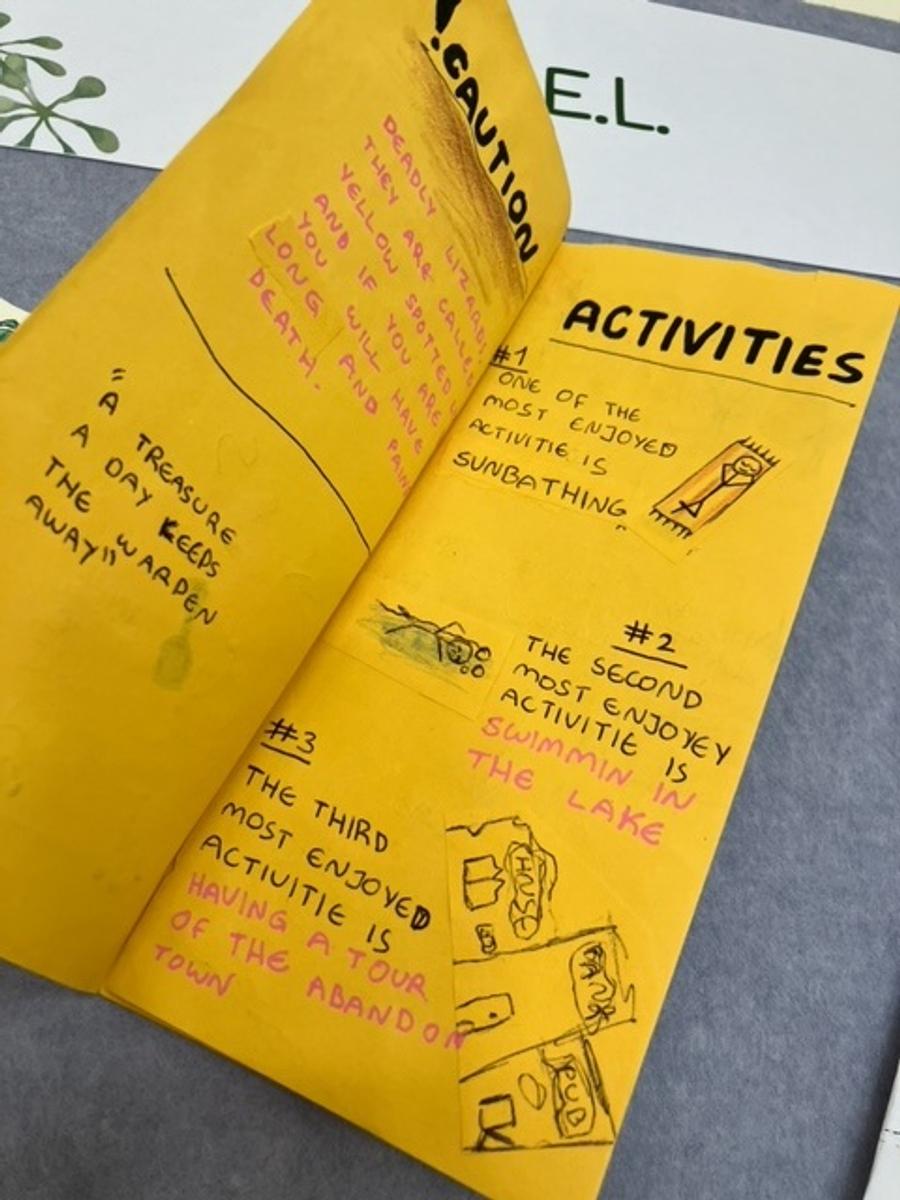 E.L.
! CAUTION
DEADLY LIZARDS
THEY ARE CALLED
YELLOW SPOTTED
AND IF YOU ARE
YOU WILL HAVE
LONG AND PAIN
DEATH.
"A TREASURE
A DAY KEEPS
THE WARDEN
AWAY"
ACTIVITIES
#1
ONE OF THE
MOST ENJOYED
ACTIVITIE IS
SUNBATHING
#2
THE SECOND
MOST ENJOYEY
ACTIVITIE IS
SWIMMIN IN
THE LAKE
#3
THE THIRD
MOST ENJOYED
ACTIVITIE IS
HAVING A TOUR
OF THE ABANDON
TOWN
BANK
PUB